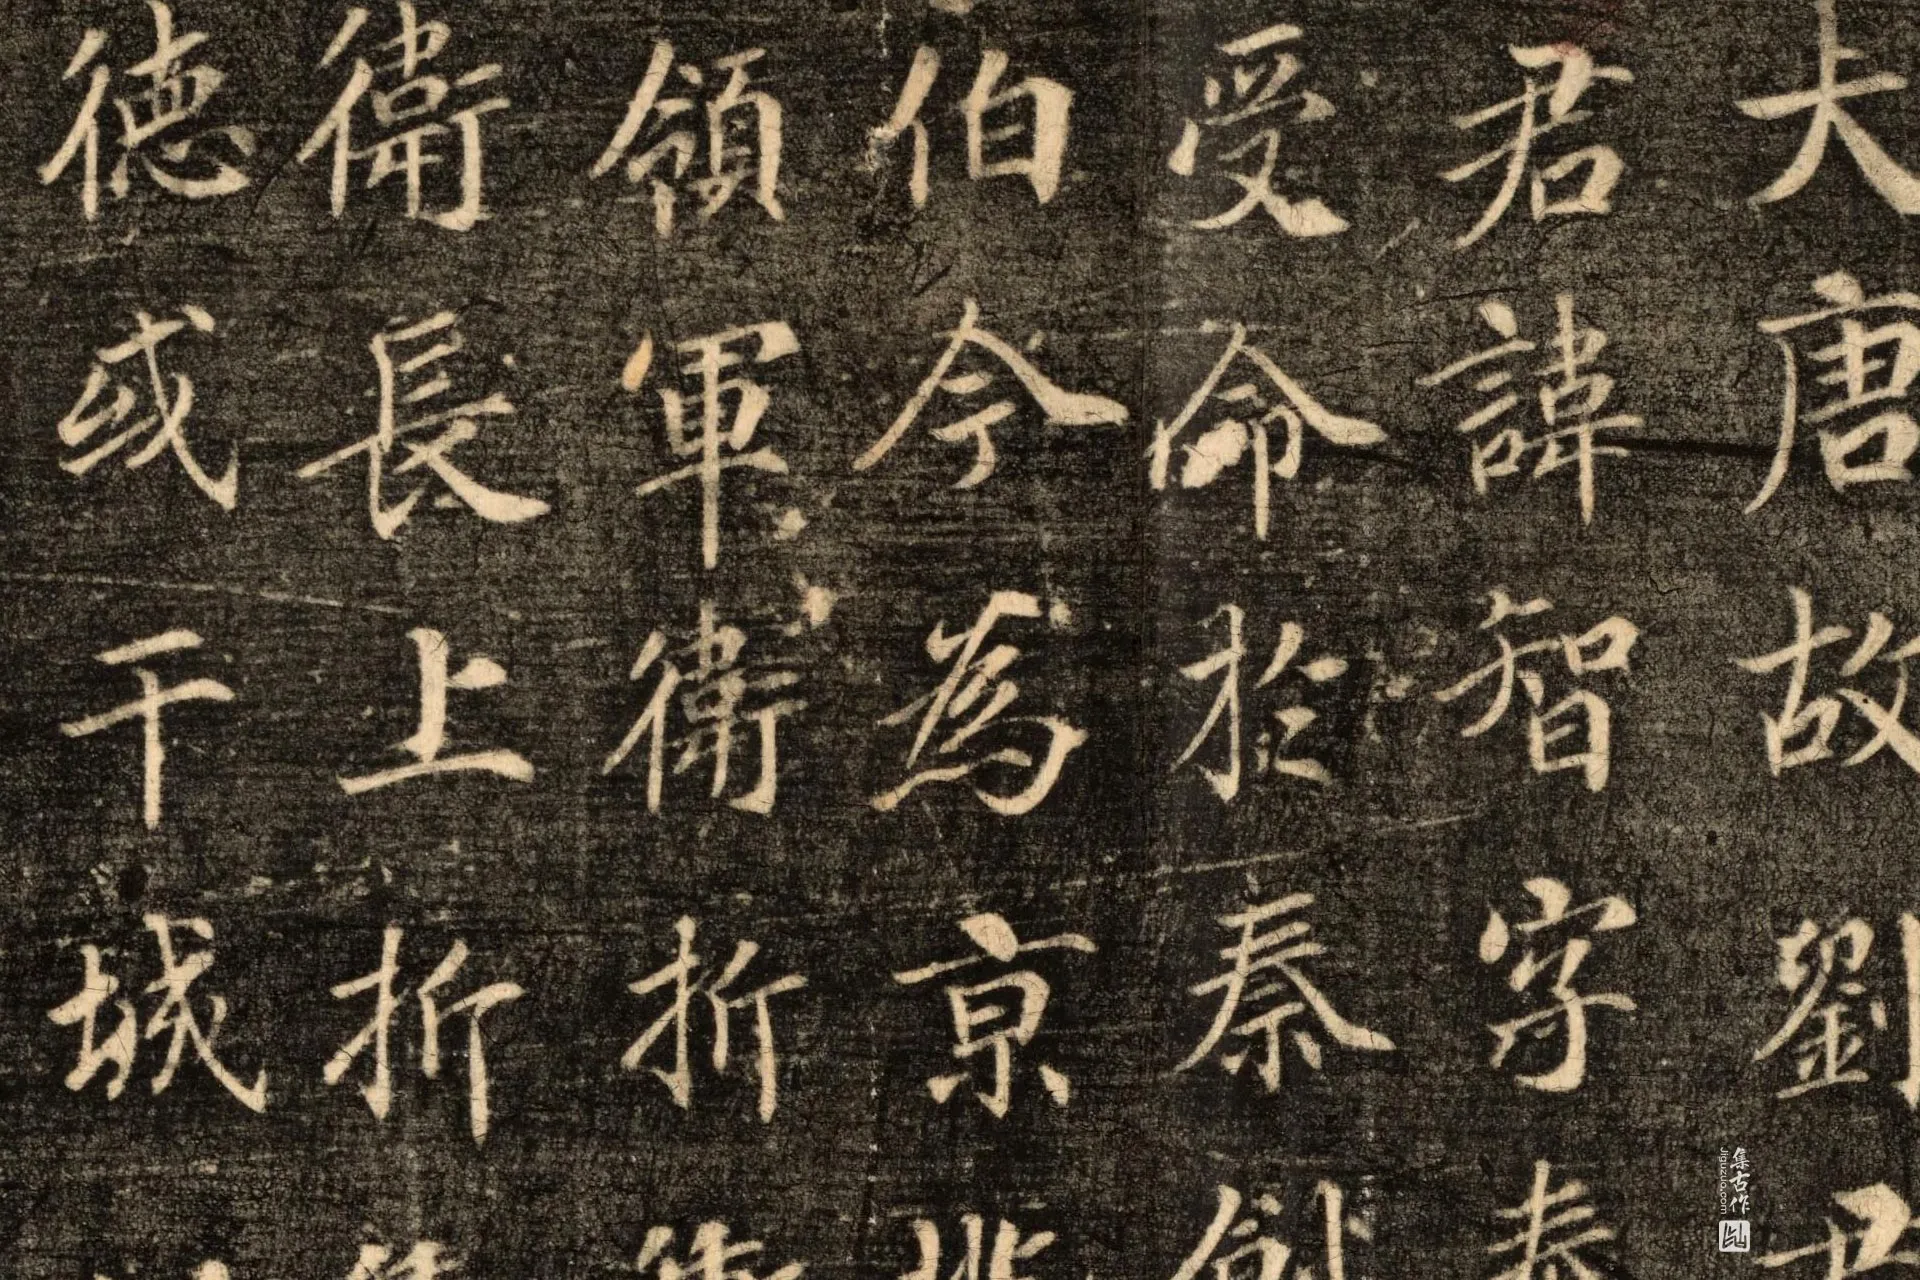 大唐故劉君
君諱智字奉
受命於秦創
伯今為京兆
領軍衛折衝
衛長上折衝
德或干城
集古作
Jiguzuo.com